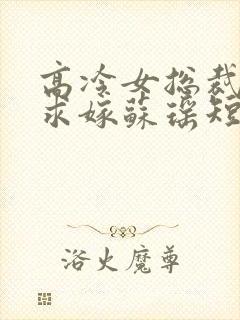 高冷女总裁
求嫁蘇瑶短
浴火魔尊